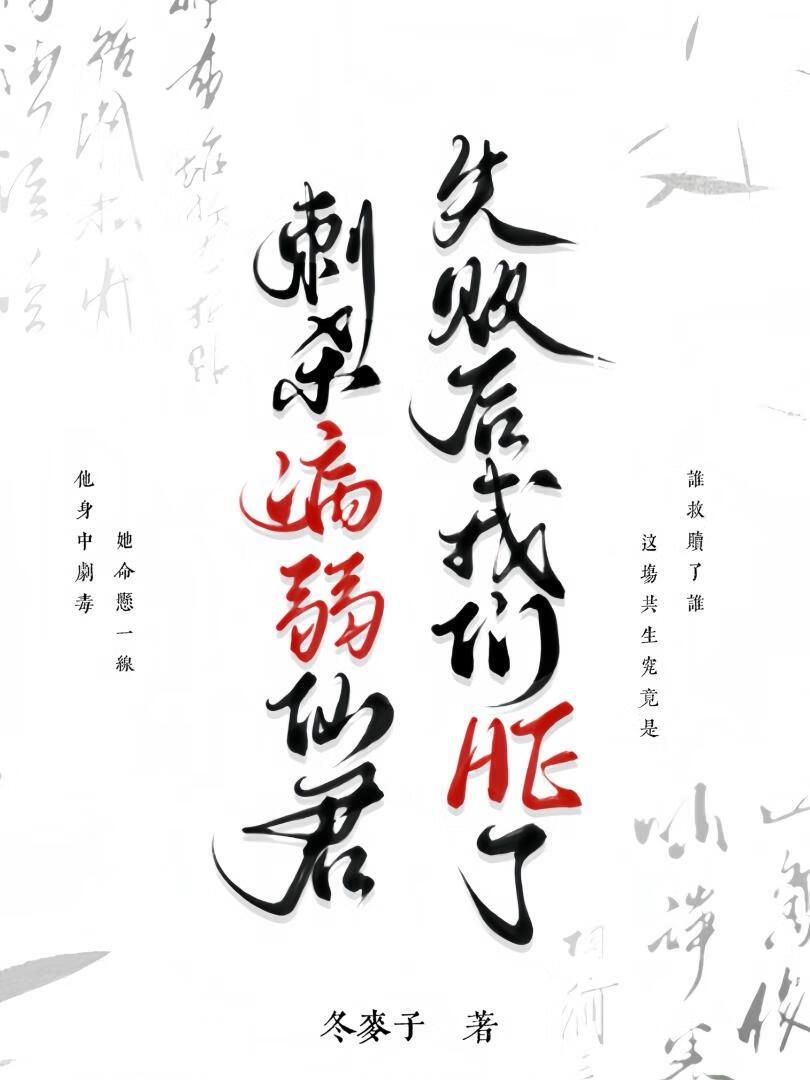 刺杀病弱仙君
失败后我们HE了
他身中劇毒
她命懸一線
这場共生究竟是
誰救贖了誰
冬麥子 著